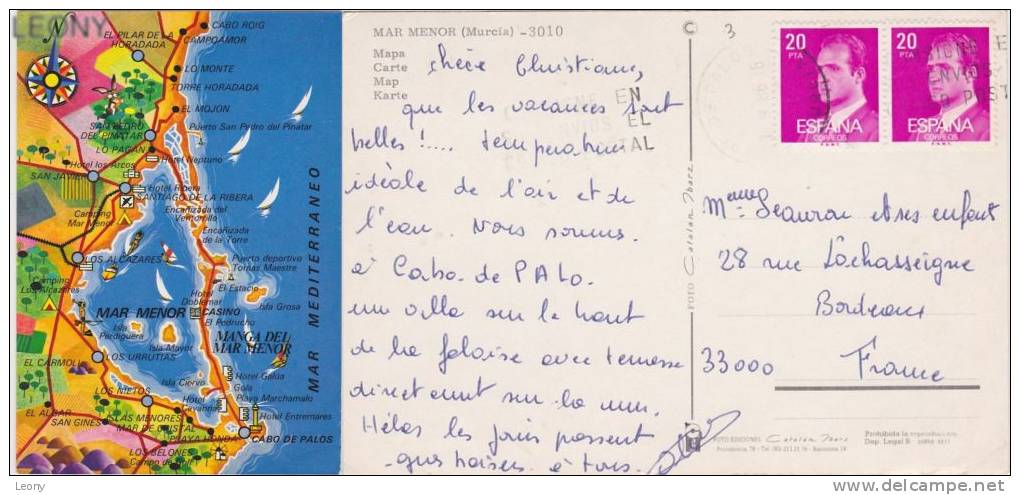 LEONY
N
CABO ROIG
CAMPOAMOR
EL PILAR DE LA
HORADADA
LO MONTE
TORRE HORADADA
EL MOJON
Puerto San Pedro del Pinatar
SAN PEDRO
DEL PINATAR
LO PAGAN
Hotel los Arcos
Hotel Neptuno
SAN JAVIER
Hotel Ribera
SANTIAGO DE LA RIBERA
Camping
Mar Menor
Encañizada del
Ventorrillo
Encañizada
de la Torre
LOS ALCAZARES
Puerto deportivo
Tomas Maestre
Camping
Los Alcazares
Hotel
Doblemar
El Estacio
Isla Grosa
MAR MENOR
CASINO
El Pedrucho
Isla
Perdiguera
Isla Mayor
MANGA DEL
MAR MENOR
EL CARMOLI
LOS URRUTIAS
Isla Ciervo
Hotel Galúa
Gola
Playa Marchamalo
LOS NIETOS
Hotel
Cavanna
Hotel Entremares
EL ALGAR
SAN GINES
ISLAS MENORES
MAR DE CRISTAL
PLAYA HONDA
CABO DE PALOS
LOS BELONES
Campo de Golf
MAR MEDITERRANEO
MAR MENOR (Murcia) -3010
Mapa
Carte
Map
Karte
chère Christiane,
que les vacances sont
belles !.... temperature
idéale de l'air et de
l'eau. Nous sommes
à Cabo de PALO.
une villa sur le haut
de la falaise avec terrasse
directement sur la mer.
Hélas les jours passent
gros baisers à tous.
C
FOTO Catalán Ibarz
3
20
PTA
ESPAÑA
CORREOS
F.N.M.T.
20
PTA
ESPAÑA
CORREOS
F.N.M.T.
EN
ENVIOS EL
POSTAL
ENVIOS
POST
Meme Beauvou et ses enfants
28 rue Lachasseigne
Bordeaux
33000 France
FOTO EDICIONES Catalán Ibarz
Prohibida la reproducción
Leony
delcampe.net